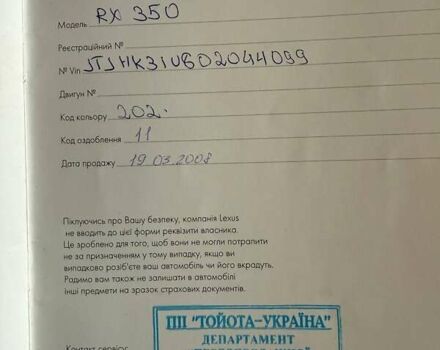 Модель RX 350
Реєстраційний №
№ Vin JTJHK31U602044099
Двигун №
Код кольору 202.
Код оздоблення 11
Дата продажу 19.03.2008
Піклуючись про Вашу безпеку, компанія Lexus
не вводить до цієї форми реквізити власника.
Це зроблено для того, щоб вони не могли потрапити
не за призначенням у тому випадку, якщо ви
випадково розіб'єте ваш автомобіль чи його вкрадуть.
Радимо вам також не залишати в автомобілі
інші предмети на зразок страхових документів.
ПІІ "ТОЙОТА-УКРАЇНА"
ДЕПАРТАМЕНТ
Контакт сервісу